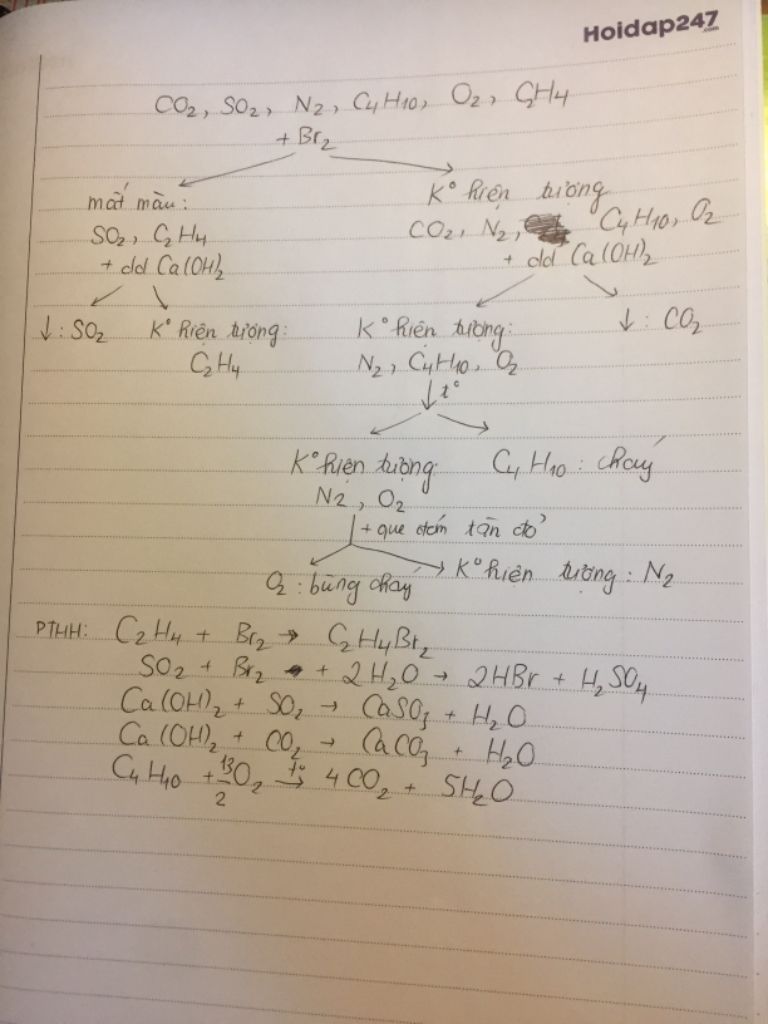 Hoidap247
.com
CO2, SO2, N2, C4H10, O2, C2H4
+ Br2
mất màu:
SO2, C2H4
+ dd Ca(OH)2
↓: SO2
K° hiện tượng:
C2H4
K° hiện tượng
CO2, N2, C4H10, O2
+ dd Ca(OH)2
K° hiện tượng:
N2, C4H10, O2
↓: CO2
↓ t°
K° hiện tượng:
N2, O2
C4H10: cháy
+ que đóm tàn đỏ
O2: bùng cháy
K° hiện tượng: N2
PTHH: C2H4 + Br2 → C2H4Br2
SO2 + Br2 + 2H2O → 2HBr + H2SO4
Ca(OH)2 + SO2 → CaSO3 + H2O
Ca(OH)2 + CO2 → CaCO3 + H2O
C4H10 + 13/2 O2 t°→ 4CO2 + 5H2O